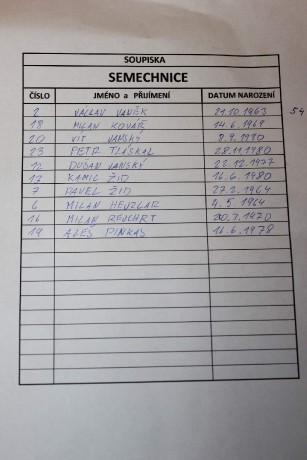 SOUPISKA
SEMECHNICE
ČÍSLO JMÉNO a PŘIJMENÍ DATUM NAROZENÍ
2 VÁCLAV VANĚK 21.10.1963 54
18 MILAN KOVÁŘ 14.6.1969
20 VÍT VANSKÝ 9.9.1980
23 PETR TLÁSKAL 28.11.1980
DUŠAN VANSKÝ 22.12.1977
KAMIL ŽID 16.6.1980
7 PAVEL ŽID 27.2.1964
6 MILAN HEUZLAR 4.5.1964
16 MILAN REICHRT 20.7.1970
19 ALEŠ PINKAS 16.6.1978